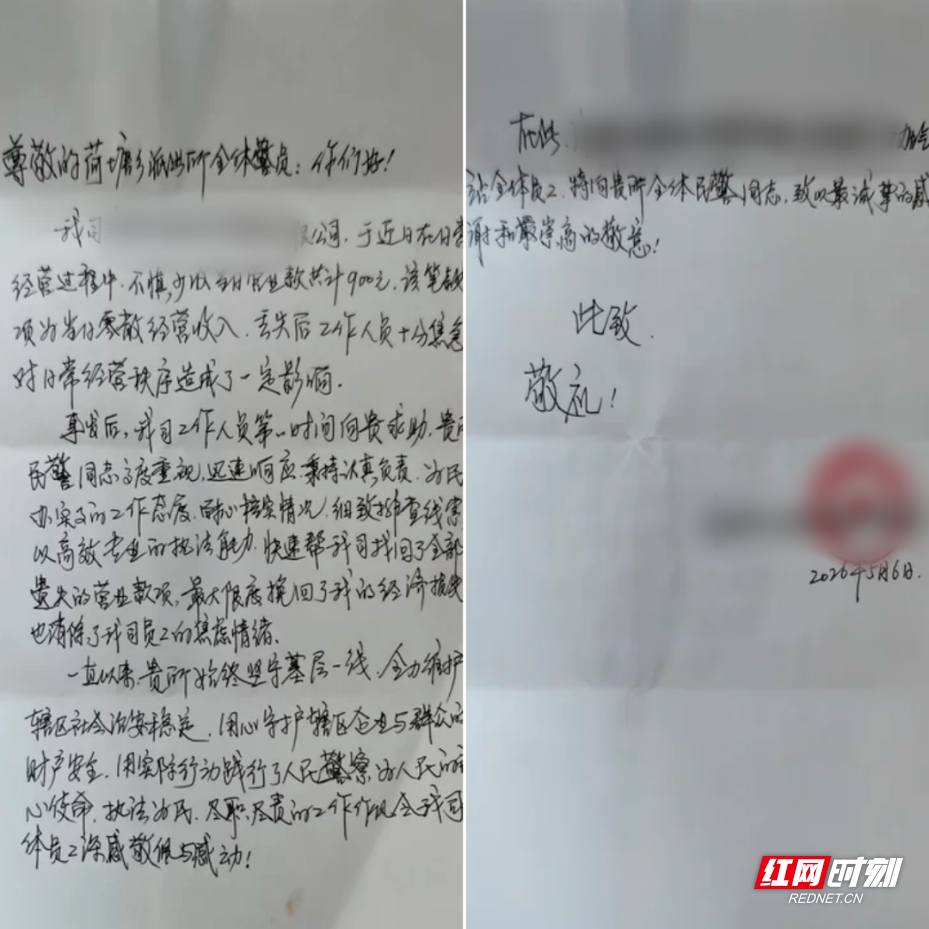 尊敬的荷塘乡派出所全体警员：你们好！
我司
限公司，于近日在日常
经营过程中，不慎少收当日营业款共计900元，该笔款
项为当日零散经营收入，丢失后工作人员十分焦急
对日常经营秩序造成了一定影响。
事发后，我司工作人员第一时间向贵求助，贵所
民警同志高度重视，迅速响应，秉持认真负责、为民
办实事的工作态度，耐心核实情况，细致排查线索
以高效专业的执法能力，快速帮我司找回了全部
遗失的营业款项，最大限度挽回了我的经济损失
也消除了我司员工的焦虑情绪。
一直以来，贵所始终坚守基层一线，全力维护
辖区社会治安稳定，用心守护辖区企业与群众的
财产安全，用实际行动践行了人民警察为人民的初
心使命，执法为民、尽职尽责的工作作风令我司
体员工深感敬佩与感动！
在此，
加
站全体员工，特向贵所全体民警同志，致以最诚挚的感
谢和最崇高的敬意！
此致
敬礼！
2026年5月6日.
红网时刻
REDNET.CN